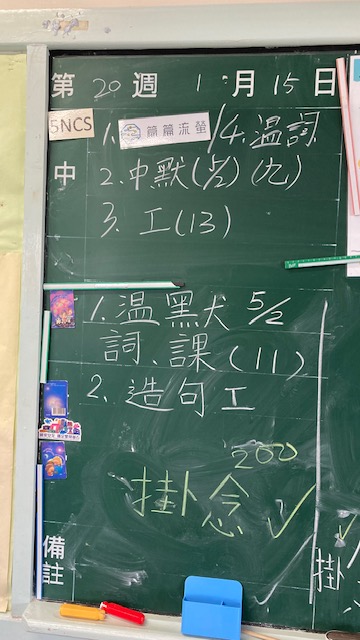 第 20 週 1 月 15 日
5NCS
1. 篇篇流螢 / 4. 溫詞
中
2. 中默(占)(九)
3. 工(13)
1. 溫默 5/2
詞、課(11)
2. 造句工
200
掛念 ✓
備註
掛